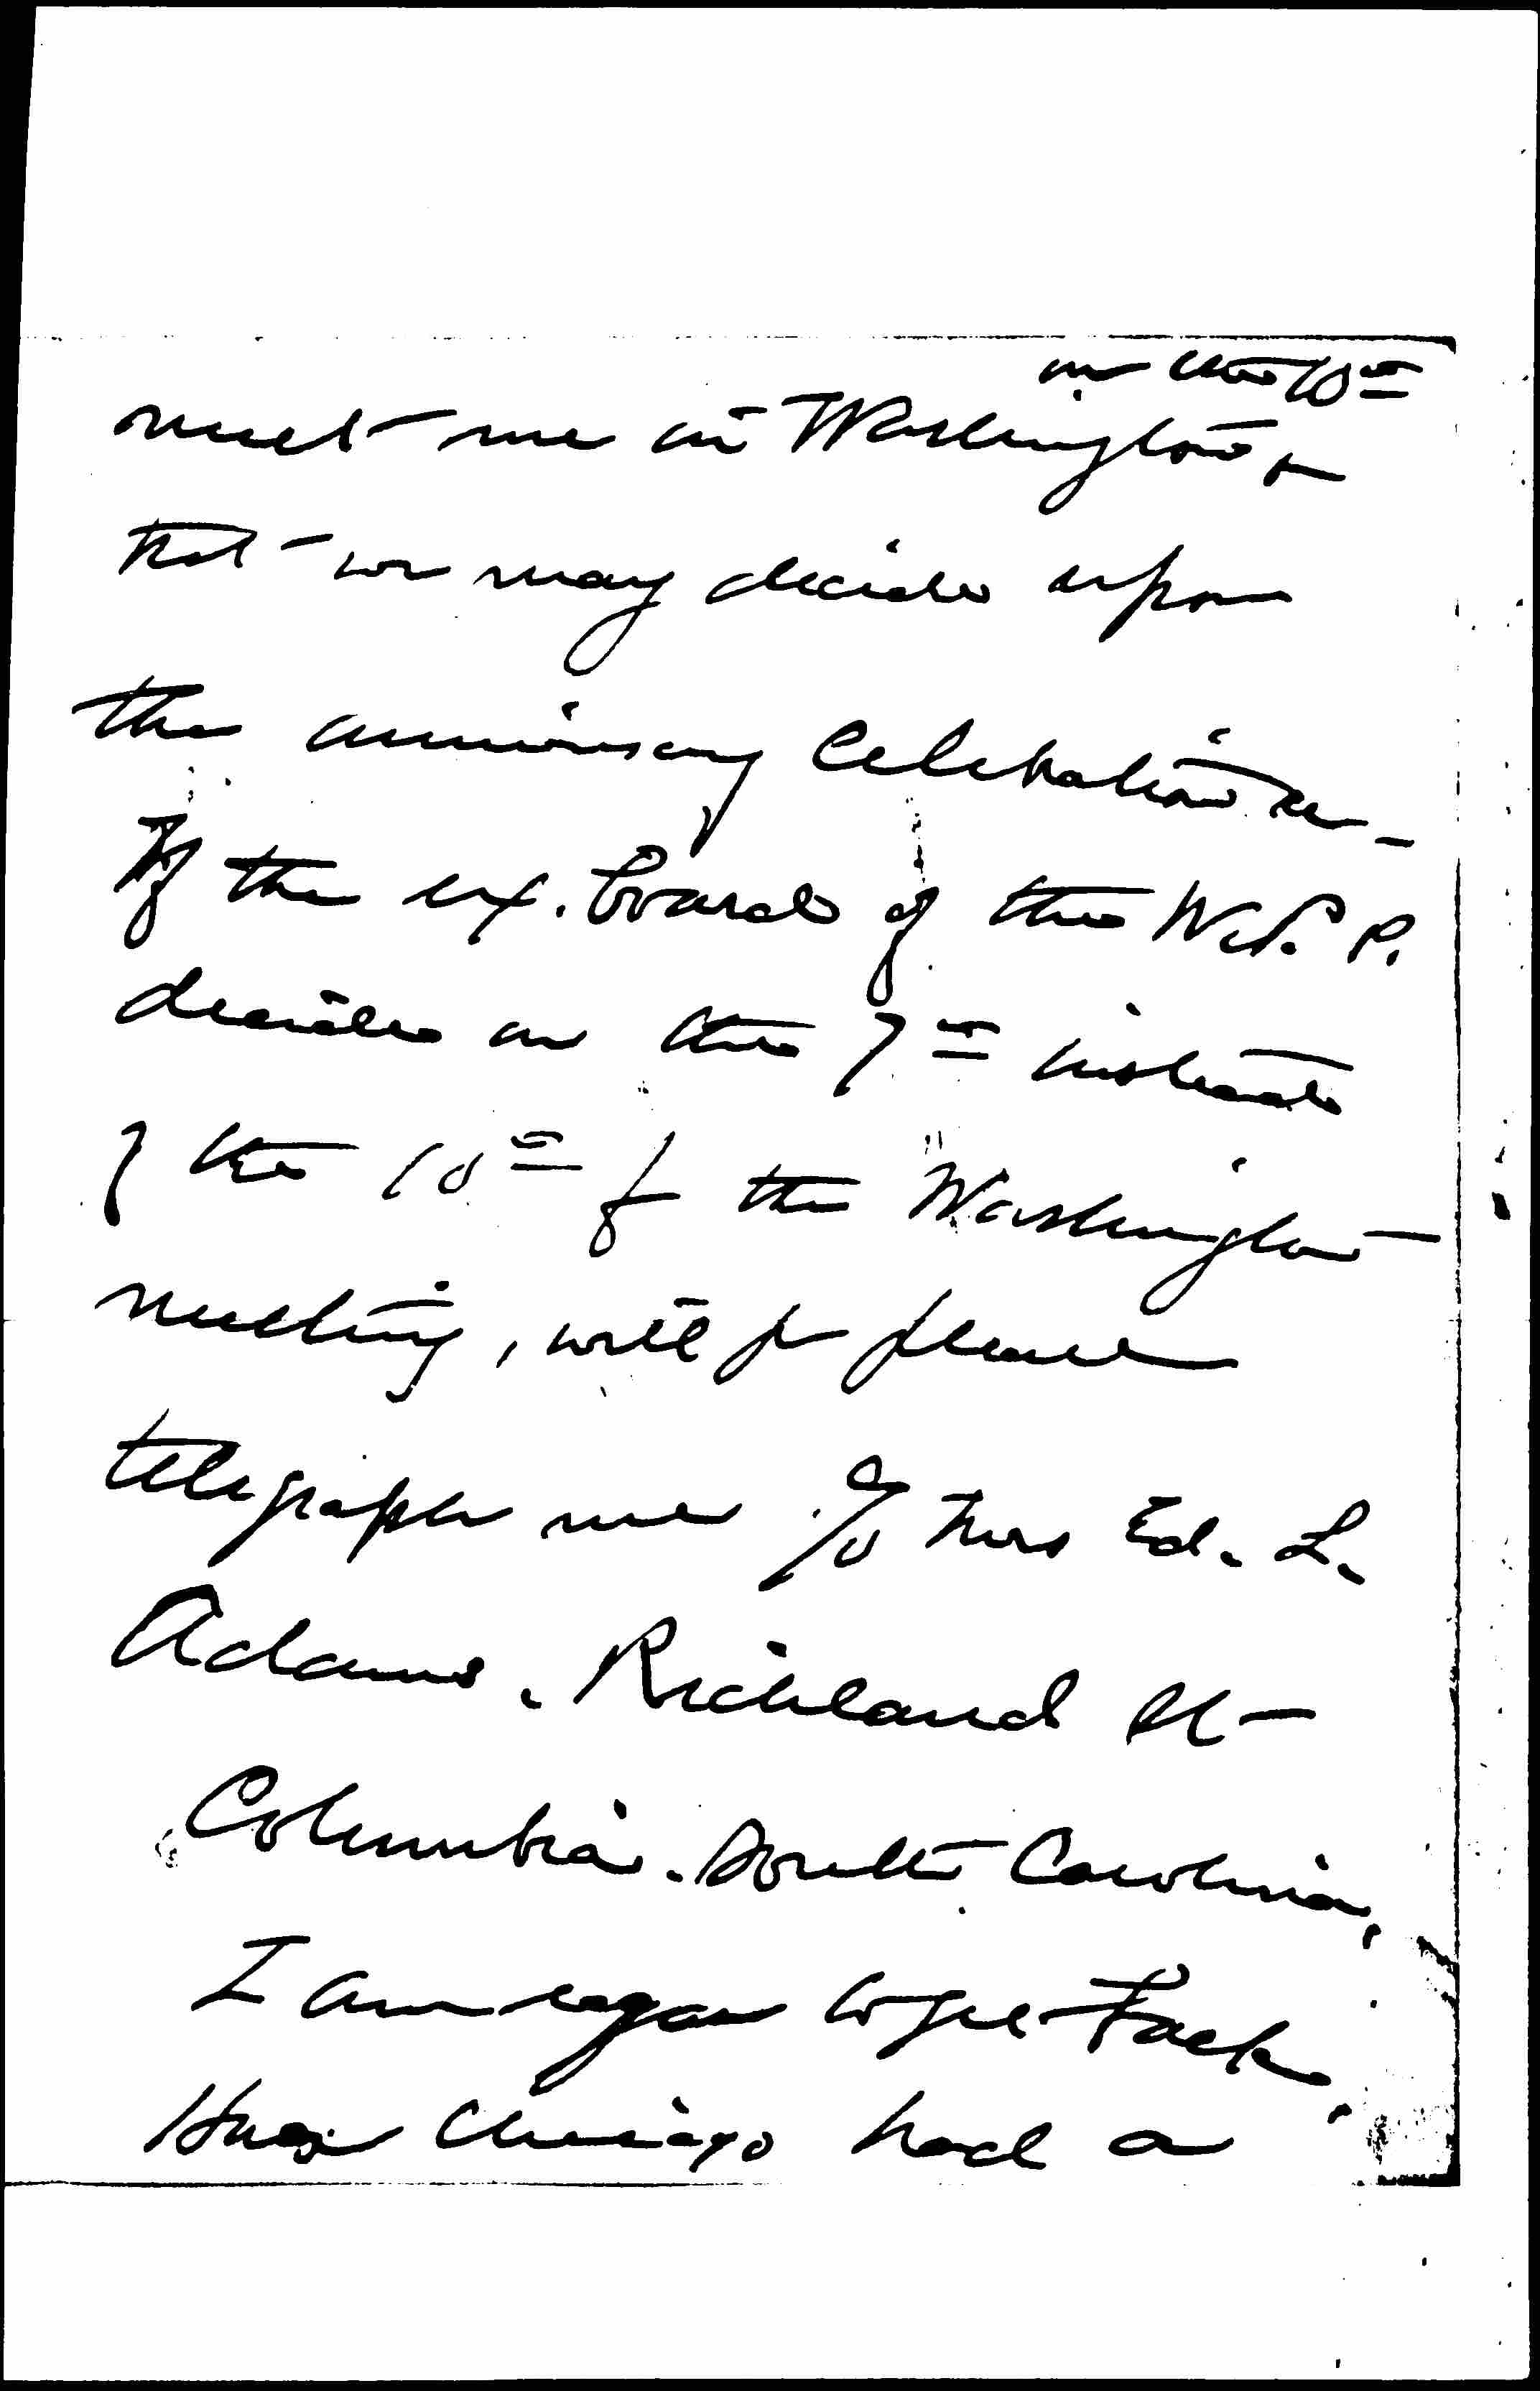 on the 10th
meet me in Washington &
that we may decide upon
the anniversary celebration
If the ex. board of the W.C.P.
decides on the 7th instead
of the 10th for the Washington
meeting, will you please
telegraph me c/o Mrs Ed. L.
Adams. Richland St
Columbia. South Carolina.
I am eager to get back.
Chicago had a